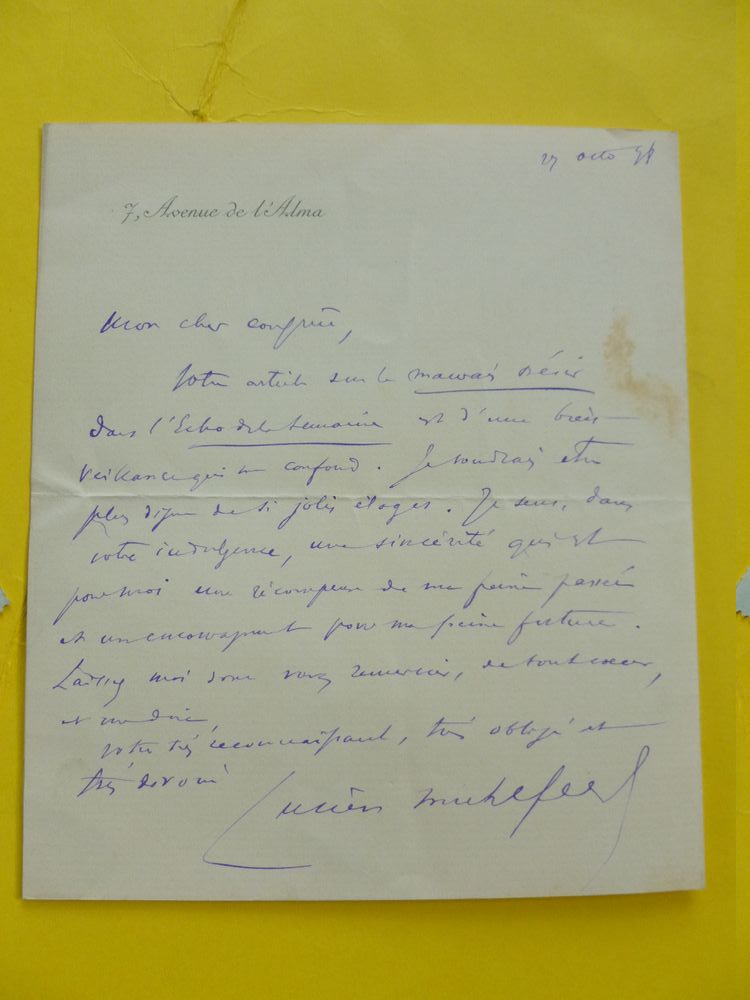 27 octo 98
7, Avenue de l'Alma
Mon cher confrère,
Votre article sur le mauvais désir
dans l'Echo de la Semaine est d'une bien
veillance qui me confond. Je voudrais être
plus digne de si jolis éloges. Je sens, dans
votre indulgence, une sincérité qui est
pour moi une récompense de ma peine passée
et un encouragement pour ma peine future.
Laissez moi donc vous remercier, de tout coeur,
et me dire,
votre très reconnaissant, très obligé et
très dévoué
Lucien Muhlfeld